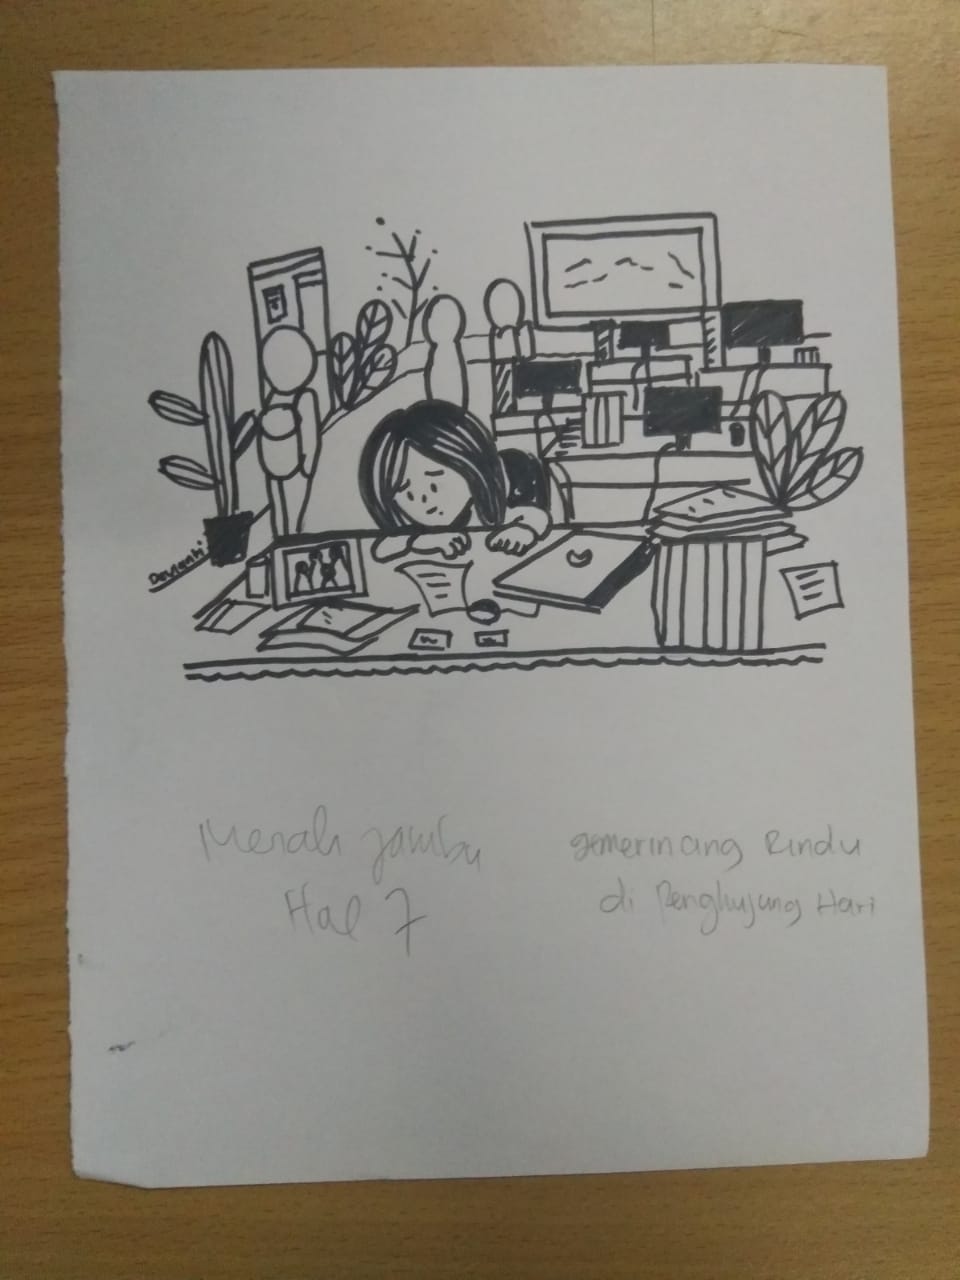 Devianti
Merah jambu
Hal 7
gemerincang Rindu
di Penghujung Hari